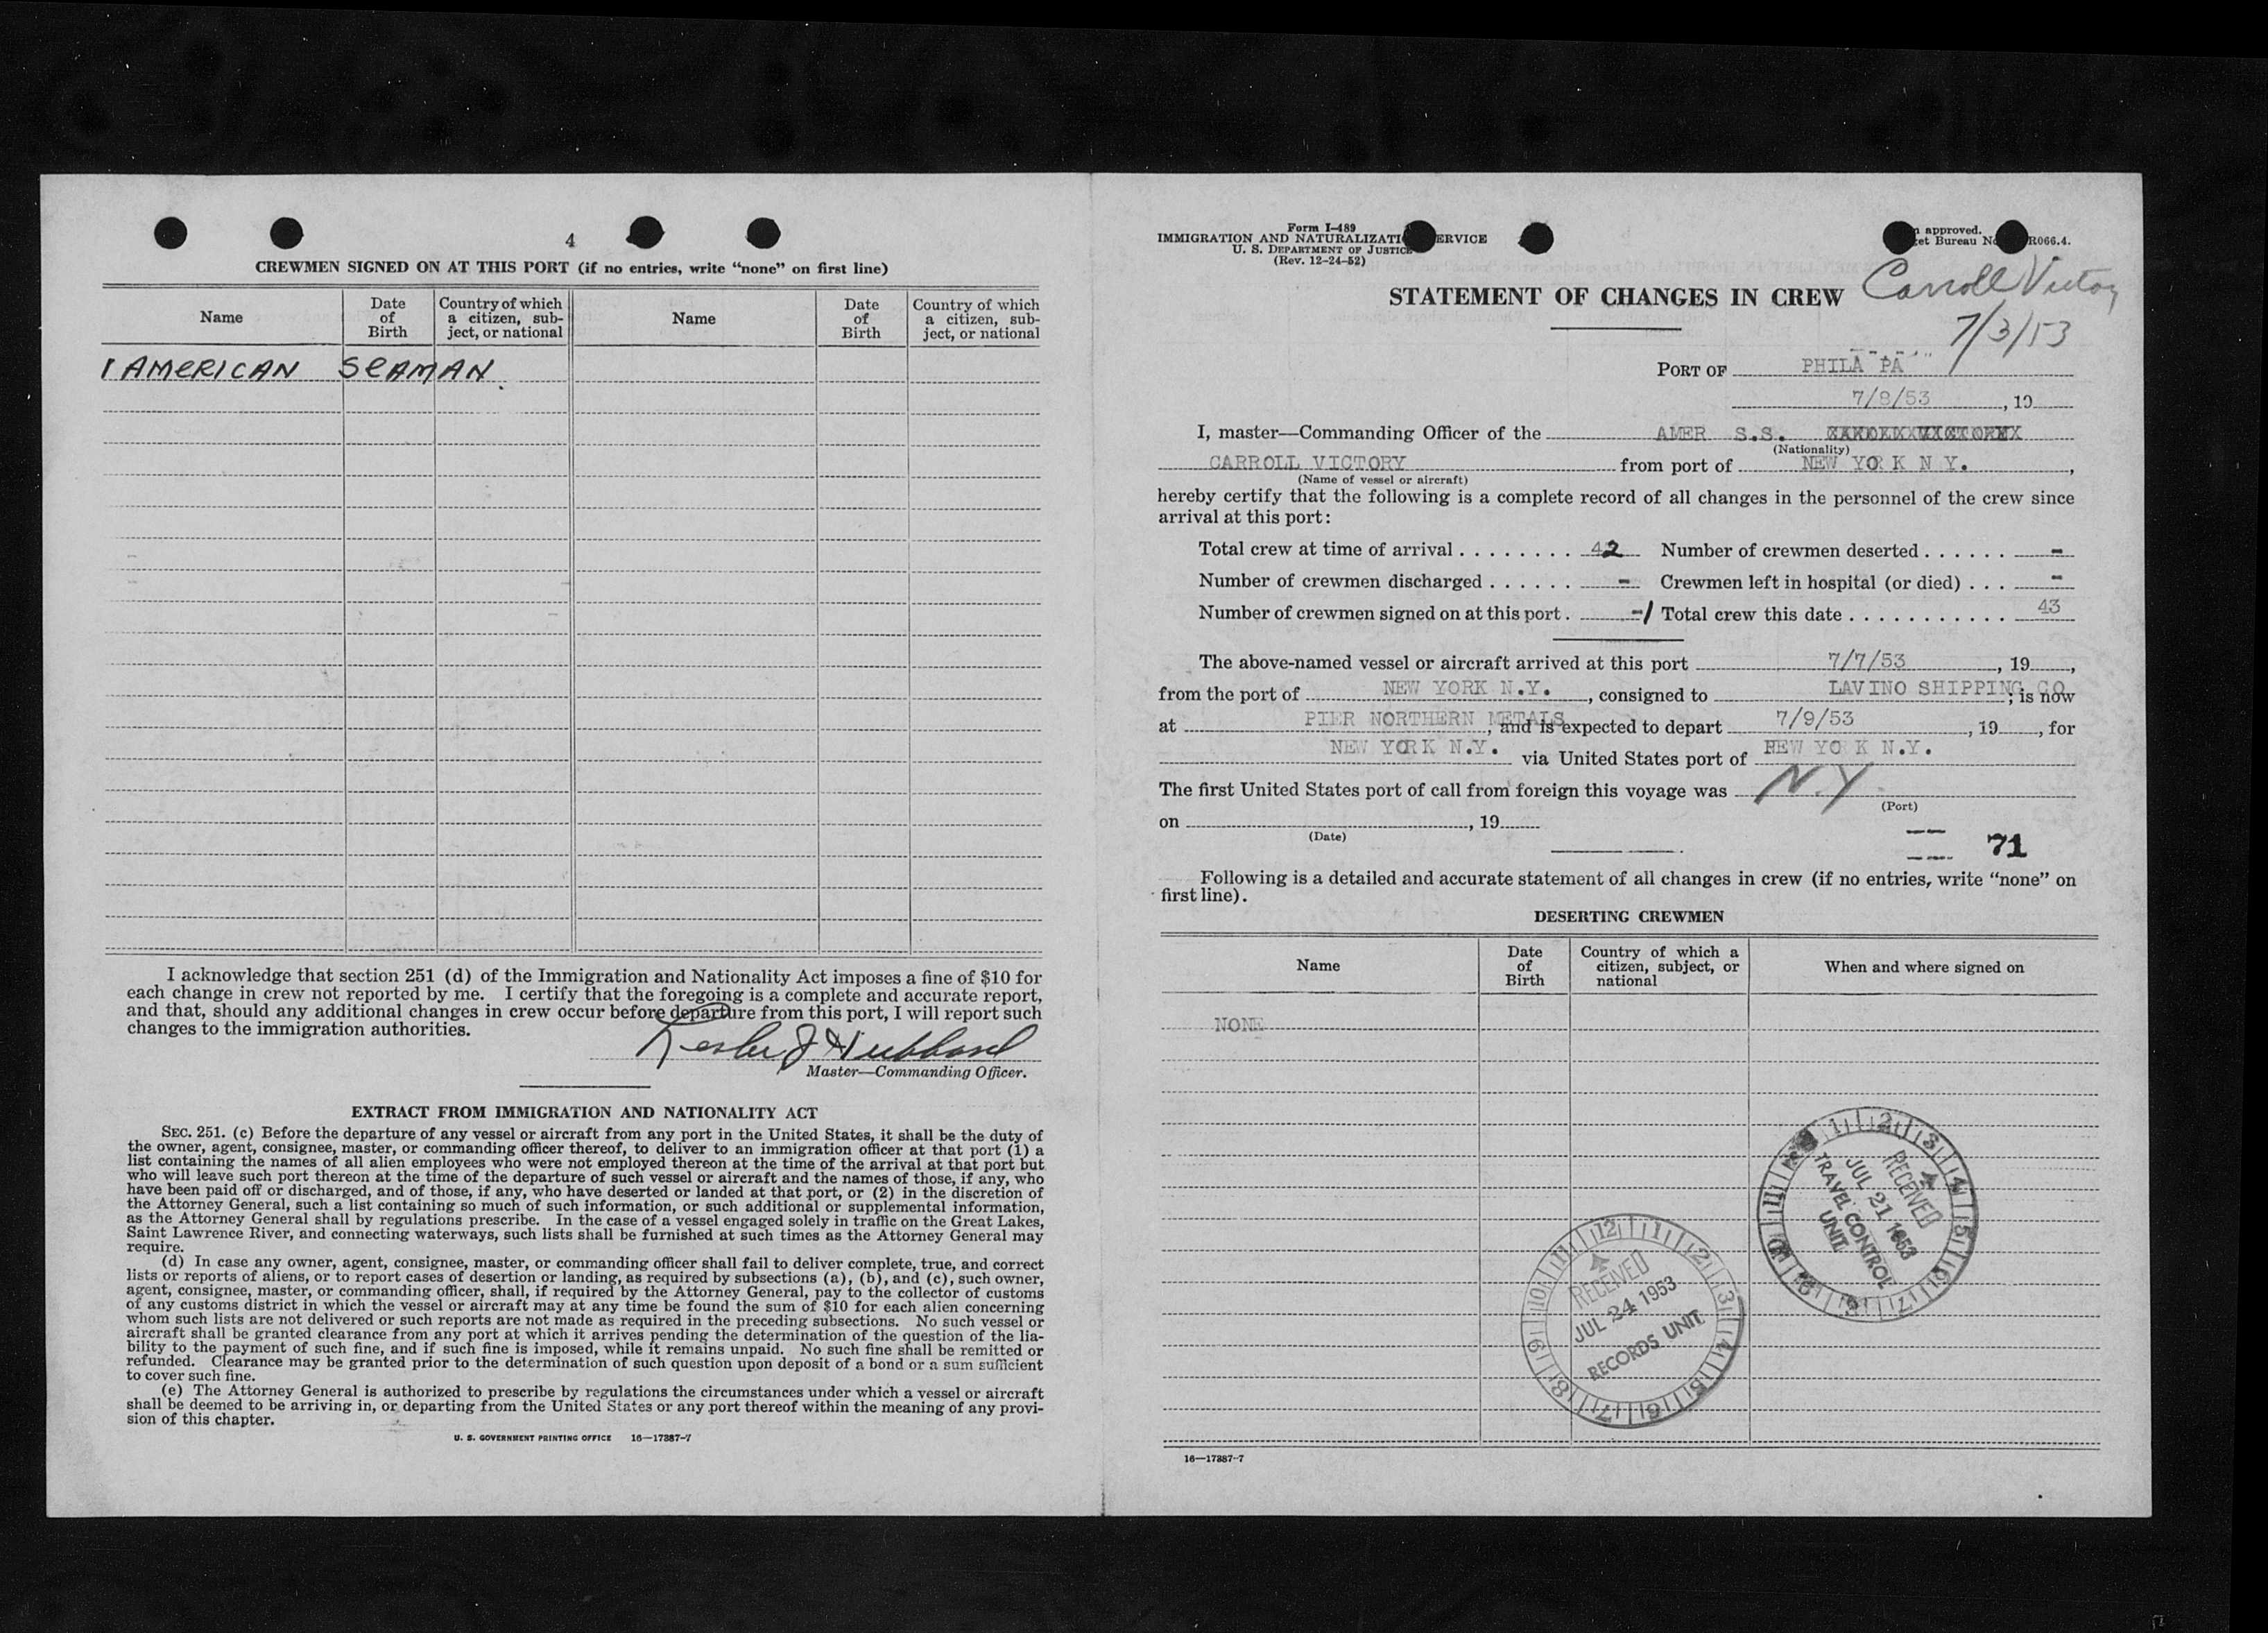 4
CREWMEN SIGNED ON AT THIS PORT (if no entries, write “none” on first line)
Name Date of Birth Country of which a citizen, subject, or national Name Date of Birth Country of which a citizen, subject, or national
1 AMERICAN SEAMAN.
I acknowledge that section 251 (d) of the Immigration and Nationality Act imposes a fine of $10 for
each change in crew not reported by me. I certify that the foregoing is a complete and accurate report,
and that, should any additional changes in crew occur before departure from this port, I will report such
changes to the immigration authorities.
Lester J Hubbard
Master—Commanding Officer.
EXTRACT FROM IMMIGRATION AND NATIONALITY ACT
SEC. 251. (c) Before the departure of any vessel or aircraft from any port in the United States, it shall be the duty of
the owner, agent, consignee, master, or commanding officer thereof, to deliver to an immigration officer at that port (1) a
list containing the names of all alien employees who were not employed thereon at the time of the arrival at that port but
who will leave such port thereon at the time of the departure of such vessel or aircraft and the names of those, if any, who
have been paid off or discharged, and of those, if any, who have deserted or landed at that port, or (2) in the discretion of
the Attorney General, such a list containing so much of such information, or such additional or supplemental information,
as the Attorney General shall by regulations prescribe. In the case of a vessel engaged solely in traffic on the Great Lakes,
Saint Lawrence River, and connecting waterways, such lists shall be furnished at such times as the Attorney General may
require.
(d) In case any owner, agent, consignee, master, or commanding officer shall fail to deliver complete, true, and correct
lists or reports of aliens, or to report cases of desertion or landing, as required by subsections (a), (b), and (c), such owner,
agent, consignee, master, or commanding officer, shall, if required by the Attorney General, pay to the collector of customs
of any customs district in which the vessel or aircraft may at any time be found the sum of $10 for each alien concerning
whom such lists are not delivered or such reports are not made as required in the preceding subsections. No such vessel or
aircraft shall be granted clearance from any port at which it arrives pending the determination of the question of the lia-
bility to the payment of such fine, and if such fine is imposed, while it remains unpaid. No such fine shall be remitted or
refunded. Clearance may be granted prior to the determination of such question upon deposit of a bond or a sum sufficient
to cover such fine.
(e) The Attorney General is authorized to prescribe by regulations the circumstances under which a vessel or aircraft
shall be deemed to be arriving in, or departing from the United States or any port thereof within the meaning of any provi-
sion of this chapter.
U. S. GOVERNMENT PRINTING OFFICE 16—17387-7
Form I-489
IMMIGRATION AND NATURALIZATI ERVICE
U. S. DEPARTMENT OF JUSTICE
(Rev. 12-24-52)
approved.
et Bureau No R066.4.
STATEMENT OF CHANGES IN CREW
Carroll Victory
7/3/53
PORT OF PHILA PA
7/8/53, 19
I, master—Commanding Officer of the AMER S.S.
(Nationality)
CARROLL VICTORY from port of NEW YORK N Y.,
(Name of vessel or aircraft)
hereby certify that the following is a complete record of all changes in the personnel of the crew since
arrival at this port:
Total crew at time of arrival . . . . . . . . 42 Number of crewmen deserted . . . . . . -
Number of crewmen discharged . . . . . . - Crewmen left in hospital (or died) . . . -
Number of crewmen signed on at this port . -1 Total crew this date . . . . . . . . . . . 43
The above-named vessel or aircraft arrived at this port 7/7/53, 19,
from the port of NEW YORK N.Y., consigned to LAVINO SHIPPING CO; is now
at PIER NORTHERN METALS, and is expected to depart 7/9/53, 19, for
NEW YORK N.Y. via United States port of NEW YORK N.Y.
The first United States port of call from foreign this voyage was N.Y.
(Port)
on , 19
(Date)
71
Following is a detailed and accurate statement of all changes in crew (if no entries, write “none” on
first line).
DESERTING CREWMEN
Name Date of Birth Country of which a citizen, subject, or national When and where signed on
NONE
RECEIVED
JUL 21 1953
TRAVEL CONTROL
UNIT
RECEIVED
JUL 24 1953
RECORDS UNIT
16—17387-7